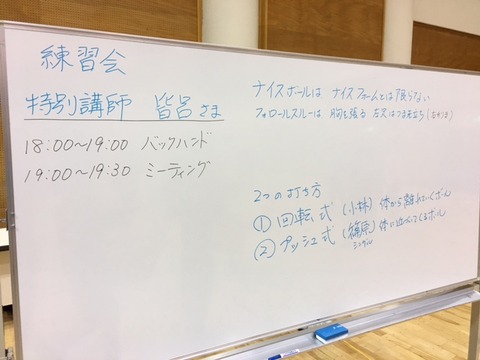 練習会
特別講師 皆呂さま
18:00〜19:00 バックハンド
19:00〜19:30 ミーティング
ナイスボールは ナイスフォームとは限らない
フォロールスルーは 胸を張る 左足はつま先立ち
2つの打ち方
① 回転式 (小林) 体から離れていくボール
② プッシュ式 (篠原) 体に近づいてくるボール